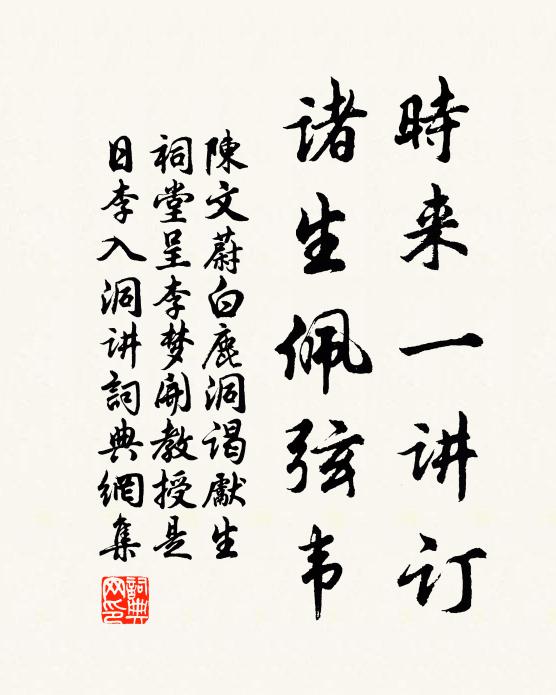 時来一讲订
诸生佩弦韦
陳文蔚白鹿洞谒獻生
祠堂呈李梦開教授是
日李入洞讲詞典網集
詞典网印